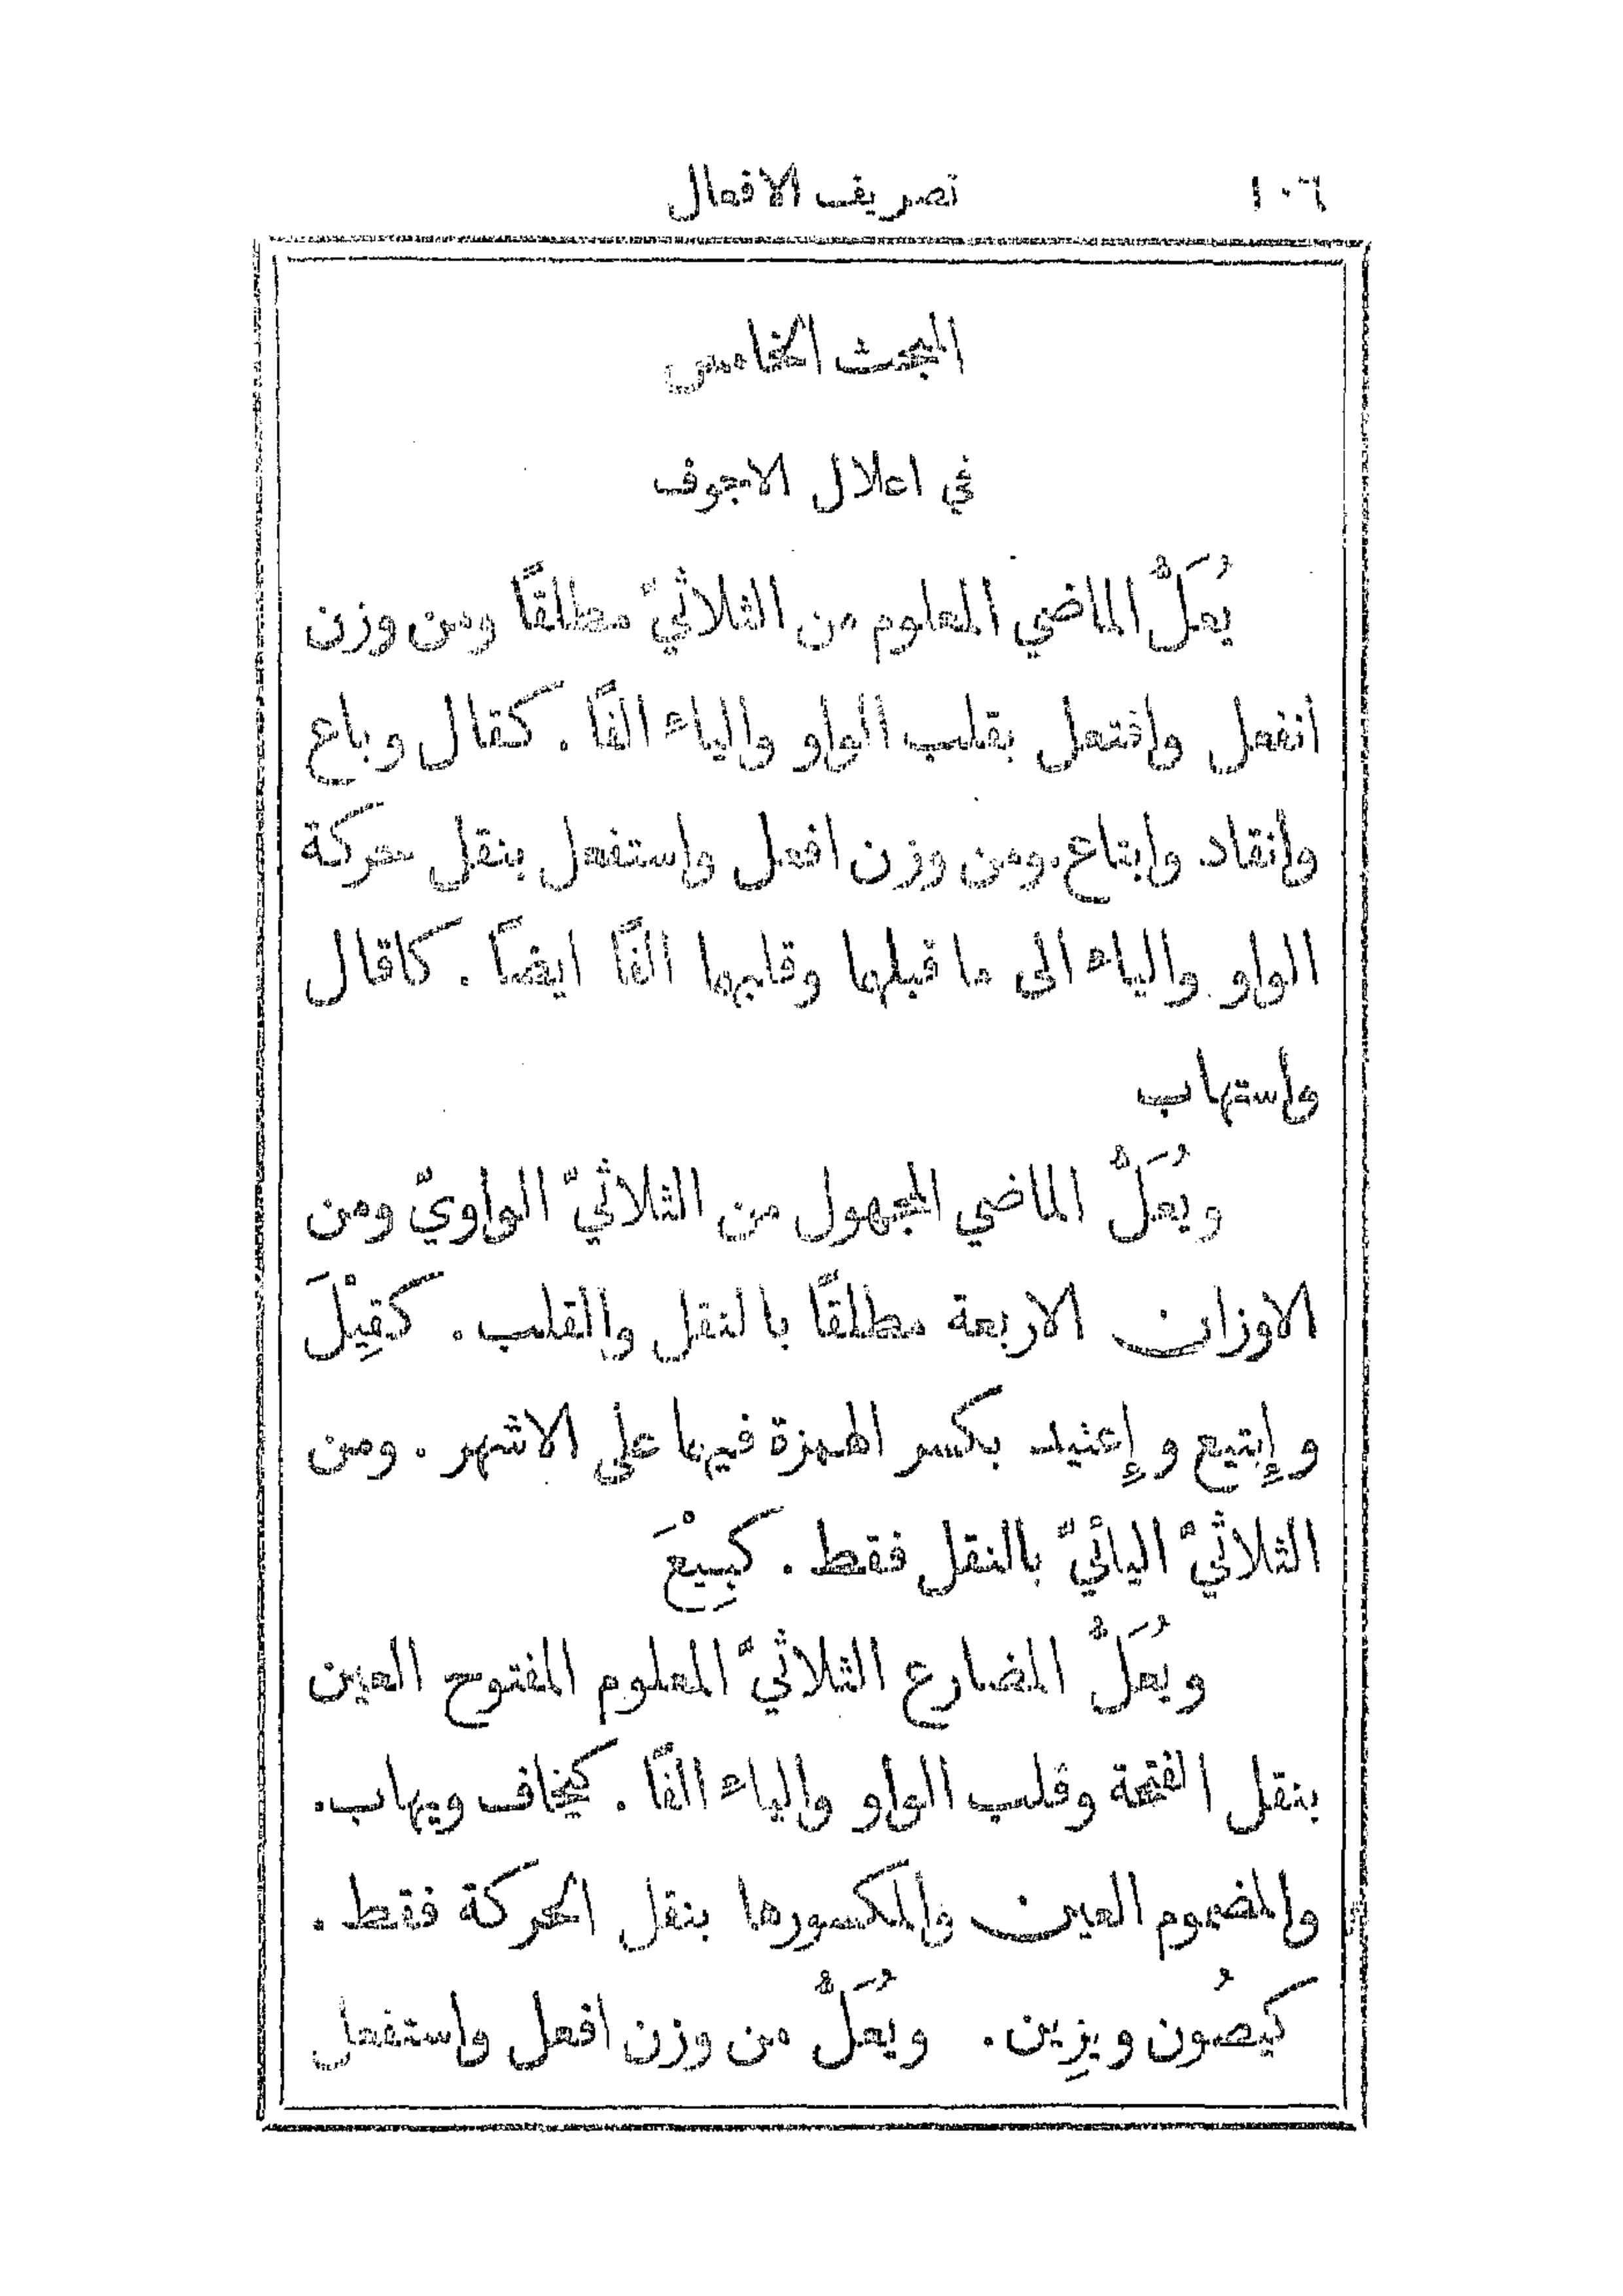 ١٠٦ تصريف الافعال
المبحث الخامس
في اعلال الاجوف
يُعَلُّ الماضي المعلوم من الثلاثيّ مطلقًا ومن وزن
انفعل وافتعل بقلب الواو والياء الفًا. كقال وباع
وانقاد وابتاع. ومن وزن افعل واستفعل بنقل حركة
الواو والياء الى ما قبلها وقلبها الفًا ايضًا. كاقال
واستهاب
ويُعَلُّ الماضي المجهول من الثلاثيّ الواويّ ومن
الاوزان الاربعة مطلقًا بالنقل والقلب. كقِيْلَ
وإبتيع وإعتيد بكسر الهمزة فيها على الاشهر. ومن
الثلاثيّ اليائيّ بالنقل فقط. كبِيْعَ
ويُعَلُّ المضارع الثلاثيّ المعلوم المفتوح العين
بنقل الفتحة وقلب الواو والياء الفًا. كيخاف ويهاب.
والمضموم العين والمكسورها بنقل الحركة فقط.
كيصُون ويزِين. ويُعَلُّ من وزن افعل واستفعل